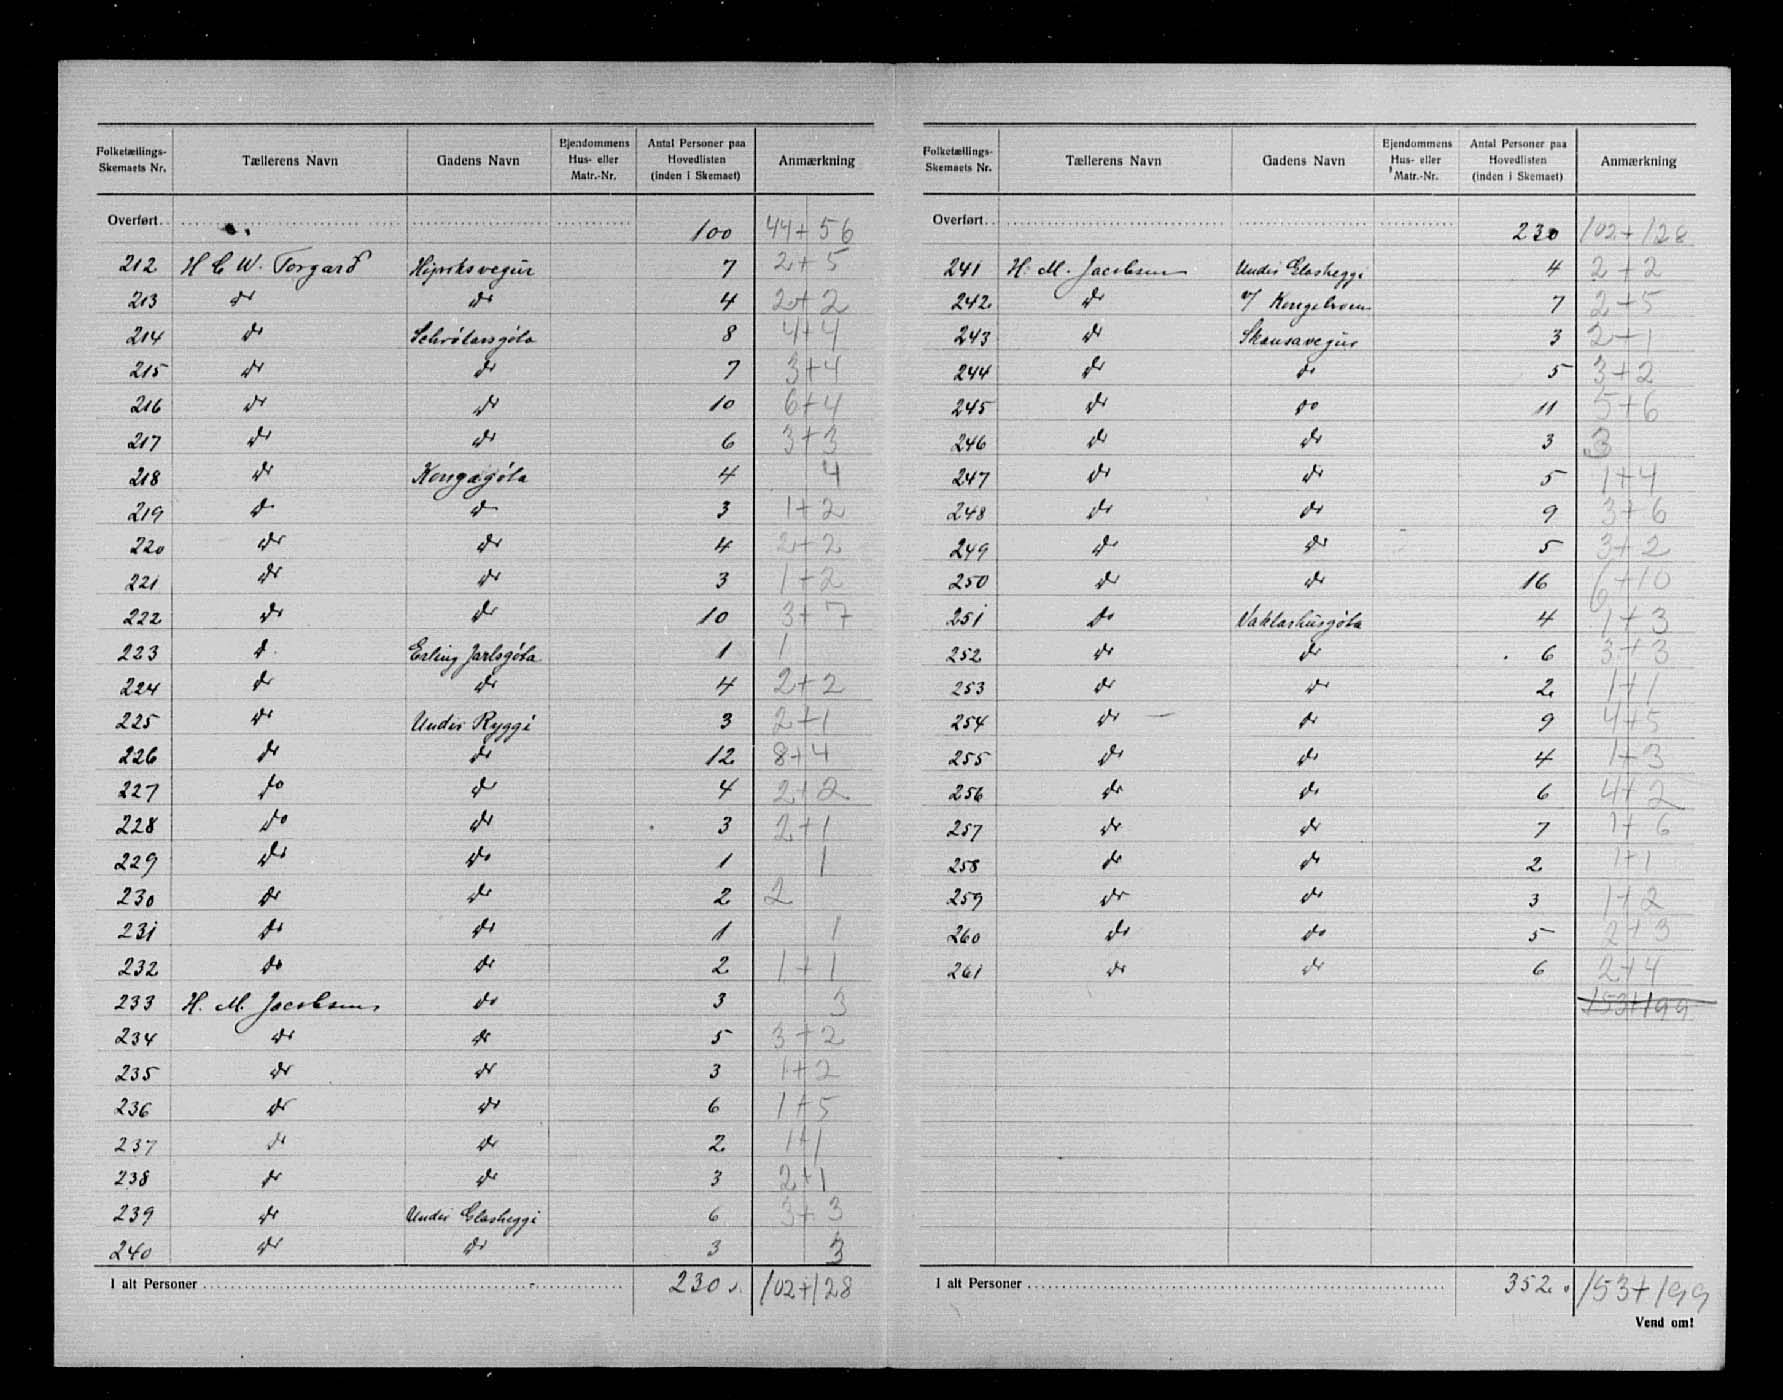 Folketællings-Skemaets Nr. Tællerens Navn Gadens Navn Ejendommens Hus- eller Matr.-Nr. Antal Personer paa Hovedlisten (inden i Skemaet) Anmærkning
Overført 100 44+56
212 H C W. Torgard Hipriksvegur 7 2+5
213 do do 4 2+2
214 do Schrøtersgøta 8 4+4
215 do do 7 3+4
216 do do 10 6+4
217 do do 6 3+3
218 do Kongagøta 4 4
219 do do 3 1+2
220 do do 4 2+2
221 do do 3 1+2
222 do do 10 3+7
223 do Erling Jarlsgøta 1 1
224 do do 4 2+2
225 do Undir Ryggi 3 2+1
226 do do 12 8+4
227 do do 4 2+2
228 do do 3 2+1
229 do do 1 1
230 do do 2 2
231 do do 1 1
232 do do 2 1+1
233 H. M. Jacobsens do 3 3
234 do do 5 3+2
235 do do 3 1+2
236 do do 6 1+5
237 do do 2 1+1
238 do do 3 2+1
239 do Undir Glasheggi 6 3+3
240 do do 3 3
I alt Personer 230 102+128
Folketællings-Skemaets Nr. Tællerens Navn Gadens Navn Ejendommens Hus- eller Matr.-Nr. Antal Personer paa Hovedlisten (inden i Skemaet) Anmærkning
Overført 230 102+128
241 H. M. Jacobsens Undir Glasheggi 4 2+2
242 do v/ Kongebrúnna 7 2+5
243 do Skansavegur 3 2+1
244 do do 5 3+2
245 do do 11 5+6
246 do do 3 3
247 do do 5 1+4
248 do do 9 3+6
249 do do 5 3+2
250 do do 16 6+10
251 do Vaktarhúsgøta 4 1+3
252 do do 6 3+3
253 do do 2 1+1
254 do do 9 4+5
255 do do 4 1+3
256 do do 6 4+2
257 do do 7 1+6
258 do do 2 1+1
259 do do 3 1+2
260 do do 5 2+3
261 do do 6 2+4
153+199
I alt Personer 352 153+199
Vend om!